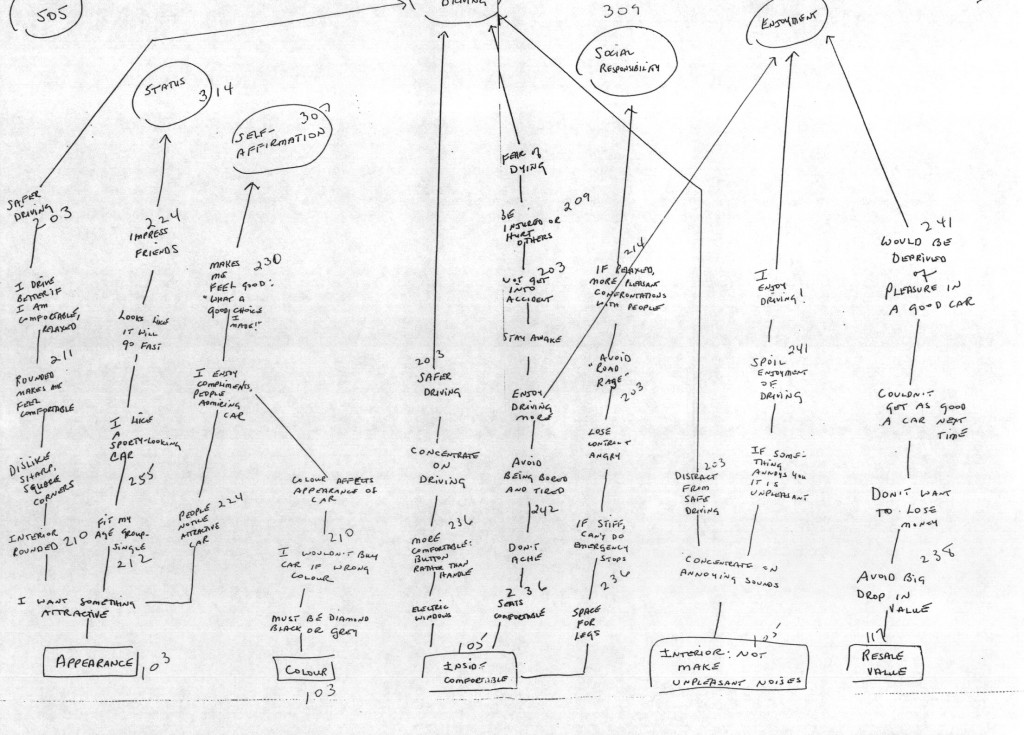 505
DRIVING
309
ENJOYMENT
STATUS
314
SELF-
AFFIRMATION
30
SOCIAL
RESPONSIBILITY
SAFER
DRIVING
203
I DRIVE
BETTER IF
I AM
COMFORTABLE,
RELAXED
211
ROUNDED
MAKES ME
FEEL
COMFORTABLE
DISLIKE
SHARP,
SQUARE
CORNERS
INTERIOR
ROUNDED 210
224
IMPRESS
FRIENDS
LOOKS LIKE
IT WILL
GO FAST
I LIKE
A
SPORTY-LOOKING
CAR
255
FIT MY
AGE GROUP.
SINGLE
212
I WANT SOMETHING
ATTRACTIVE
APPEARANCE
103
MAKES 230
ME
FEEL GOOD:
"WHAT A
GOOD CHOICE
I
MADE!"
I ENJOY
COMPLIMENTS,
PEOPLE
ADMIRING
CAR
PEOPLE 224
NOTICE
ATTRACTIVE
CAR
COLOUR AFFECTS
APPEARANCE OF
CAR
210
I WOULDN'T BUY
CAR IF WRONG
COLOUR
MUST BE DIAMOND
BLACK OR GREY
COLOUR
103
203
SAFER
DRIVING
CONCENTRATE
ON
DRIVING
236
MORE
COMFORTABLE:
BUTTON
RATHER THAN
HANDLE
ELECTRIC
WINDOWS
FEAR OF
DYING
BE 209
INJURED OR
HURT
OTHERS
NOT GET 203
INTO
ACCIDENT
STAY AWAKE
ENJOY
DRIVING
MORE
AVOID
BEING BORED
AND TIRED
242
DON'T
ACHE
236
SEATS
COMFORTABLE
105
INSIDE
COMFORTABLE
214
IF RELAXED,
MORE PLEASANT
CONFRONTATIONS
WITH PEOPLE
AVOID
"ROAD
RAGE"
203
LOSE
CONTROL
ANGRY
IF STIFF,
CAN'T DO
EMERGENCY
STOPS
236
SPACE
FOR
LEGS
203
DISTRACT
FROM
SAFE
DRIVING
CONCENTRATE ON
ANNOYING SOUNDS
I
ENJOY
DRIVING!
241
SPOIL
ENJOYMENT
OF
DRIVING
IF SOME-
THING
ANNOYS YOU
IT IS
UNPLEASANT
105
INTERIOR: NOT
MAKE
UNPLEASANT NOISES
241
WOULD BE
DEPRIVED
OF
PLEASURE IN
A GOOD CAR
COULDN'T
GET AS GOOD
A CAR NEXT
TIME
DON'T WANT
TO LOSE
MONEY
238
AVOID BIG
DROP IN
VALUE
RESALE
VALUE